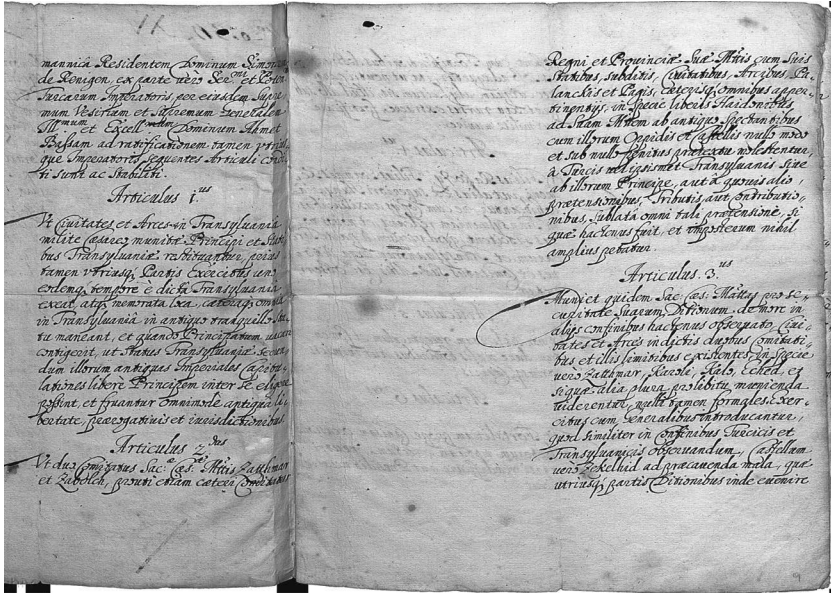 mannicâ Residentem Dominum Simonem
de Renigen, ex parte verò Ser.mi et Poten
Turcarum Imperatoris per eiusdem Supre,
mum Vesirium et Supremum Generalem
Ill.mum et Excell. Dominum Ahmet
Bassam ad ratificationem tamen utrius,
que Imperatoris sequentes Articuli
ti sunt ac Stabiliti.
Articulus 1.us
Ut Civitates et Arces in Transylvania
milite Cæsareo munitæ Principi et Stati
bus Transylvaniæ restituantur, prius
tamen utriusq. Partis Exercitus uno
eodemq. tempore è dicta Transylvania
exeat, atq. memorata loca, cæteraq. omnia
in Transylvania in antiquo tranquillo Sta
tu maneant, et quando Principatum vacare
contigerit, ut Status Transylvaniæ secun
dum illorum antiquas Imperiales Capitu,
lationes libere Principem inter se eligere
possint, et fruantur omnimodè antiquâ li,
bertate, prærogativis et iurisdictionibus.
Articulus 2.dus
Ut duo Comitatus Sac.æ Cæs.æ Mttis Zatthmar
et Zabolch, prouti etiam cæteri Comitatus
Regni et Provinciæ Suæ Mttis cum Suis
Statibus, subditis, Civitatibus, Arcibus, Pa,
lanckis et Pagis, cæterisq. omnibus apper,
tinentijs, in Specie liberis Haidonibus
ad Suam Mttem ab antiquo Spectantibus
cum illorum Oppidis et Castellis nullo modo
et sub nullo penitus prætextu molestentur,
à Turcis vel ipsismet Transylvanis Sive
ab illorum Principe, aut à quovis alio
prætensionibus, Tributis, aut contributio,
nibus, Sublatâ omni tali prætensione, si
quæ hactenus fuit, et imposterum nihil
amplius petatur.
Articulus. 3.us
Muniet quidem Sac. Cæs. Mattas pro se,
curitate Suarum Ditionum, de more in
alijs confinibus hactenus observato, Civi,
tates et Arces in dictis duobus Comitati,
bus et illis limitibus existentes, in Specie
verò Zatthmar, Karoli, Kalo, Eched, et
si quæ alia plura pro libitu munienda
viderentur, nulli tamen formales Exer,
citus cum Generalibus introducantur,
quod similiter in Confinibus Turcicis et
Transylvanicis observandum, Castellum
verò Zekelhid ad præcavenda mala, quæ
utriusq. partis Ditionibus inde evenire
9